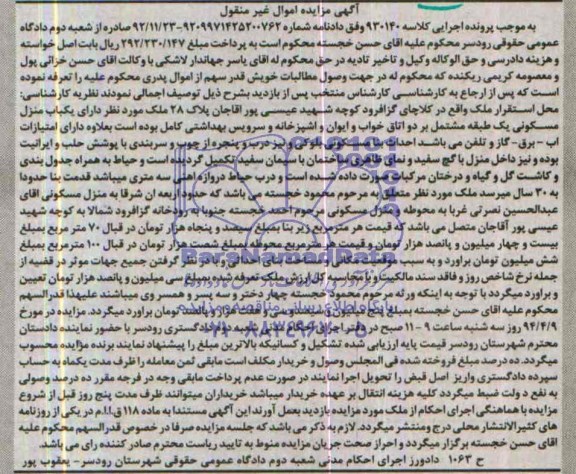 آگهی مزایده اموال غیر منقول
به موجب پرونده اجرایی کلاسه ۹۳۰۱۴۰ وفق دادنامه شماره ۹۲۰۹۹۷۱۴۲۵۲۰۰۷۶۲-۹۲/۱۱/۲۳ صادره از شعبه دوم دادگاه
عمومی حقوقی رودسر محکوم علیه اقای حسن خجسته محکوم است به پرداخت مبلغ ۲۹۲/۲۳۰/۱۴۷ ریال بابت اصل خواسته
و هزینه دادرسی و حق الوکاله وکیل و تاخیر تادیه در حق محکوم له اقای یاسر جهاندار لاشکی با وکالت اقای حسن خزائی پول
و معصومه کریمی ریکنده که محکوم له در جهت وصول مطالبات خویش قدر سهم از اموال پدری محکوم علیه را تعرفه نموده
است که پس از ارجاع به کارشناسی کارشناس منتخب پس از بازدید بشرح ذیل توصیف اجمالی نمودند نظریه کارشناسی:
محل استقرار ملک واقع در کلاچای گزافرود کوچه شهید عیسی پور اقاجان پلاک ۲۸ ملک مورد نظر دارای یکباب منزل
مسکونی یک طبقه مشتمل بر دو اتاق خواب و ایوان و اشپزخانه و سرویس بهداشتی کامل بوده است بعلاوه دارای امتیازات
اب - برق - گاز و تلفن می باشد احداث بنای مسکونی بلوکی و تیر درب و پنجره از چوب و سربندی با پوشش حلب و ایرانیت
بوده و نیز داخل منزل با گچ سفید و نمای ظاهری ساختمان با سیمان سفید تکمیل گردیده است و حیاط به همراه جدول بندی
و کاشت گل و گیاه و درختان مرکبات صورت داده شده است و درب حیاط دروازه اهنی سه متری میباشد قدمت بنا حدودا
به ۳۰ سال میرسد ملک مورد نظر متعلق به مرحوم محمود خجسته می باشد که حدود اربعه ان شرقا به منزل مسکونی اقای
عبدالحسین نصرتی غربا به محوطه و منزل مسکونی مرحوم احمد خجسته جنوبا به رودخانه گزافرود شمالا به کوچه شهید
عیسی پور آقاجان متصل می باشد که قیمت هر مترمربع زیر بنا بمبلغ سیصد و پنجاه هزار تومان در قبال ۷۰ متر مربع بمبلغ
بیست و چهار میلیون و پانصد هزار تومان و قیمت هر مترمربع محوطه بمبلغ شصت هزار تومان در قبال ۱۰۰ مترمربع بمبلغ
شش میلیون تومان براورد و به سبب گرفتن جمیع جهات موثر در قضیه از
جمله نرخ شاخص روز و فاقد سند مالکیت و با محاسبه کل ارزش ملک تعرفه شده بمبلغ سی میلیون و پانصد هزار تومان تعیین
و براورد میگردد با توجه به اینکه ورثه مرحوم محمود خجسته چهار دختر و سه پسر و همسر وی میباشند علیهذا قدرالسهم
محکوم علیه اقای حسن خجسته بمبلغ پنج میلیون و هزار و پانصد تومان براورد میگردد. مزایده در مورخ
۹۴/۴/۹ روز سه شنبه ساعت ۹-۱۱ صبح در دفتر اجرای احکام دادگستری رودسر با حضور نماینده دادستان
محترم شهرستان رودسر قیمت پایه ارزیابی شده تشکیل و کسانیکه بالاترین مبلغ را پیشنهاد نمایند برنده مزایده محسوب
میگردد. ده درصد مبلغ فروخته شده فی المجلس وصول و خریدار مکلف است مابقی ثمن معامله را ظرف مدت یکماه به حساب
سپرده دادگستری واریز اصل قبض را تحویل اجرا نمایند در صورت عدم پرداخت مابقی وجه در فرجه مقرر ده درصد وصولی
به نفع دولت ضبط میگردد کلیه هزینه انتقال بر عهده خریدار میباشد خریداران میتوانند ظرف مدت پنج روز قبل از شروع
مزایده با هماهنگی اجرای احکام از ملک مورد مزایده بازدید بعمل آورند این آگهی مستندا به ماده ۱۱۸ ق.ا.ا.م در یکی از روزنامه
های کثیرالانتشار محلی درج ومنتشر میگردد. لازم به ذکر می باشد که جلسه مزایده صرفا در خصوص قدرالسهم محکوم علیه
اقای حسن خجسته برگزار میگردد و احراز صحت جریان مزایده منوط به تایید ریاست محترم صادر کننده رای می باشد.
ح ۱۰۶۳ دادورز اجرای احکام مدنی شعبه دوم دادگاه عمومی حقوقی شهرستان رودسر- یعقوب پور